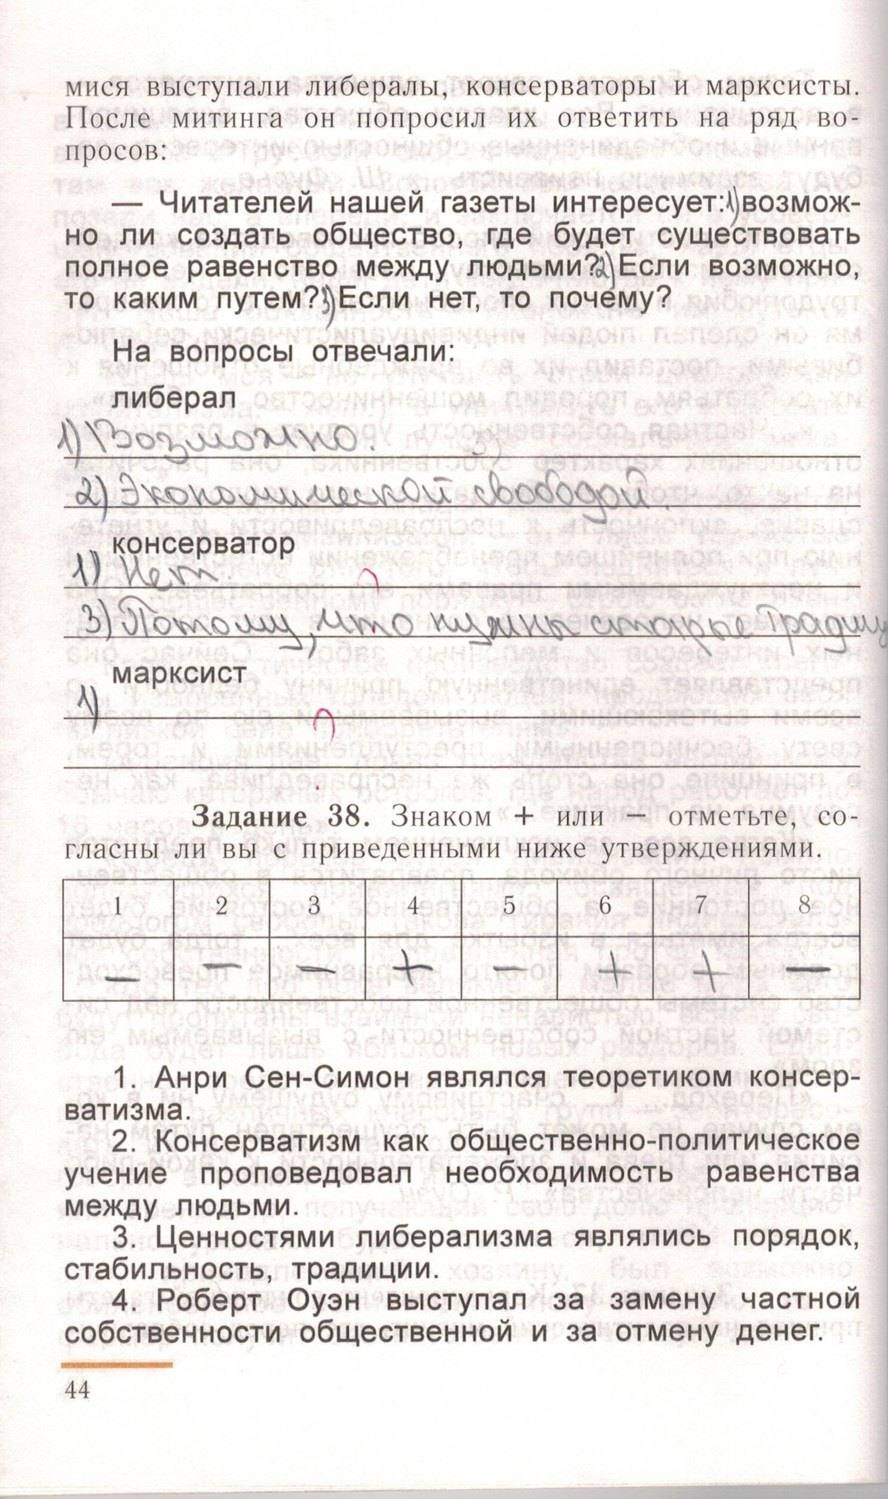 мися выступали либералы, консерваторы и марксисты.
После митинга он попросил их ответить на ряд во-
просов:
— Читателей нашей газеты интересует: 1) возмож-
но ли создать общество, где будет существовать
полное равенство между людьми? 2) Если возможно,
то каким путем? 3) Если нет, то почему?
На вопросы отвечали:
либерал
1) Возможно.
2) Экономической свободой.
консерватор
1) Нет.
3) Потому, что нужны старые традиц
марксист
1)
Задание 38. Знаком + или — отметьте, со-
гласны ли вы с приведенными ниже утверждениями.
1 2 3 4 5 6 7 8
— — — + — + + —
1. Анри Сен-Симон являлся теоретиком консер-
ватизма.
2. Консерватизм как общественно-политическое
учение проповедовал необходимость равенства
между людьми.
3. Ценностями либерализма являлись порядок,
стабильность, традиции.
4. Роберт Оуэн выступал за замену частной
собственности общественной и за отмену денег.
44